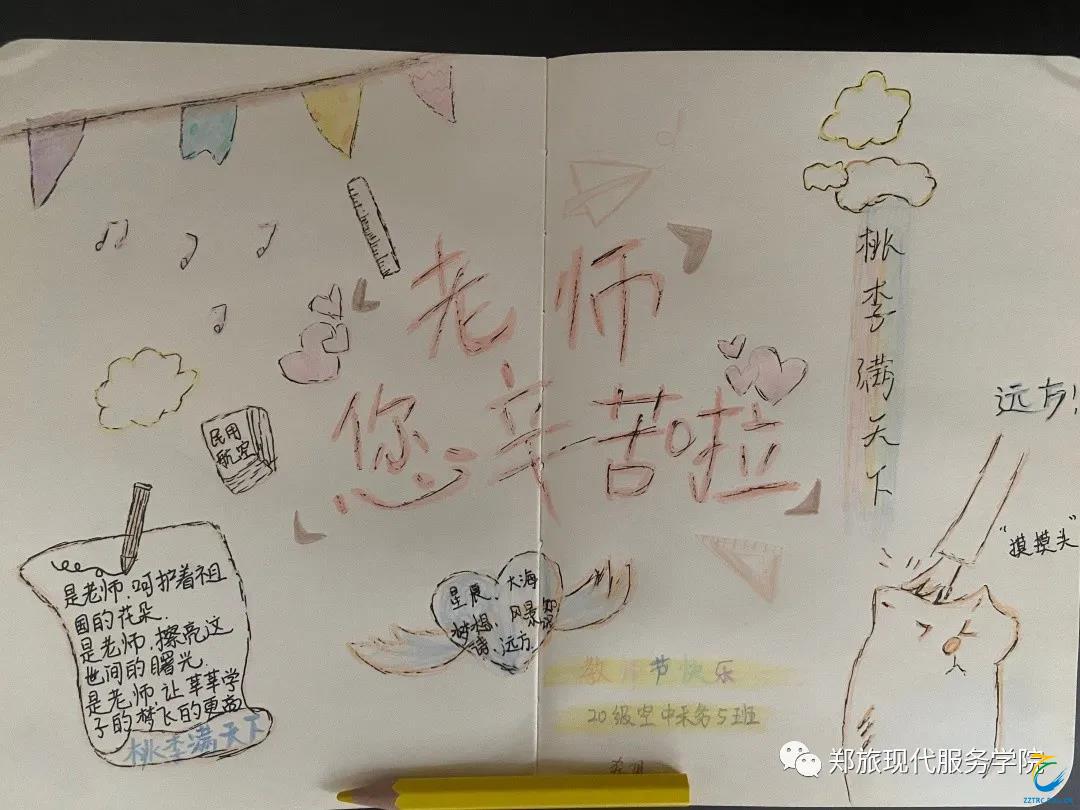 老师
您辛苦啦
桃李满天下
远方!
"摸摸头"
民用
航空
是老师.呵护着祖
国的花朵.
是老师.擦亮这
世间的曙光.
是老师.让莘莘学
子的梦飞的更高
桃李满天下
星晨、大海
梦想、风景
远方
教师节快乐
20级空中乘务5班
郑旅现代服务学院